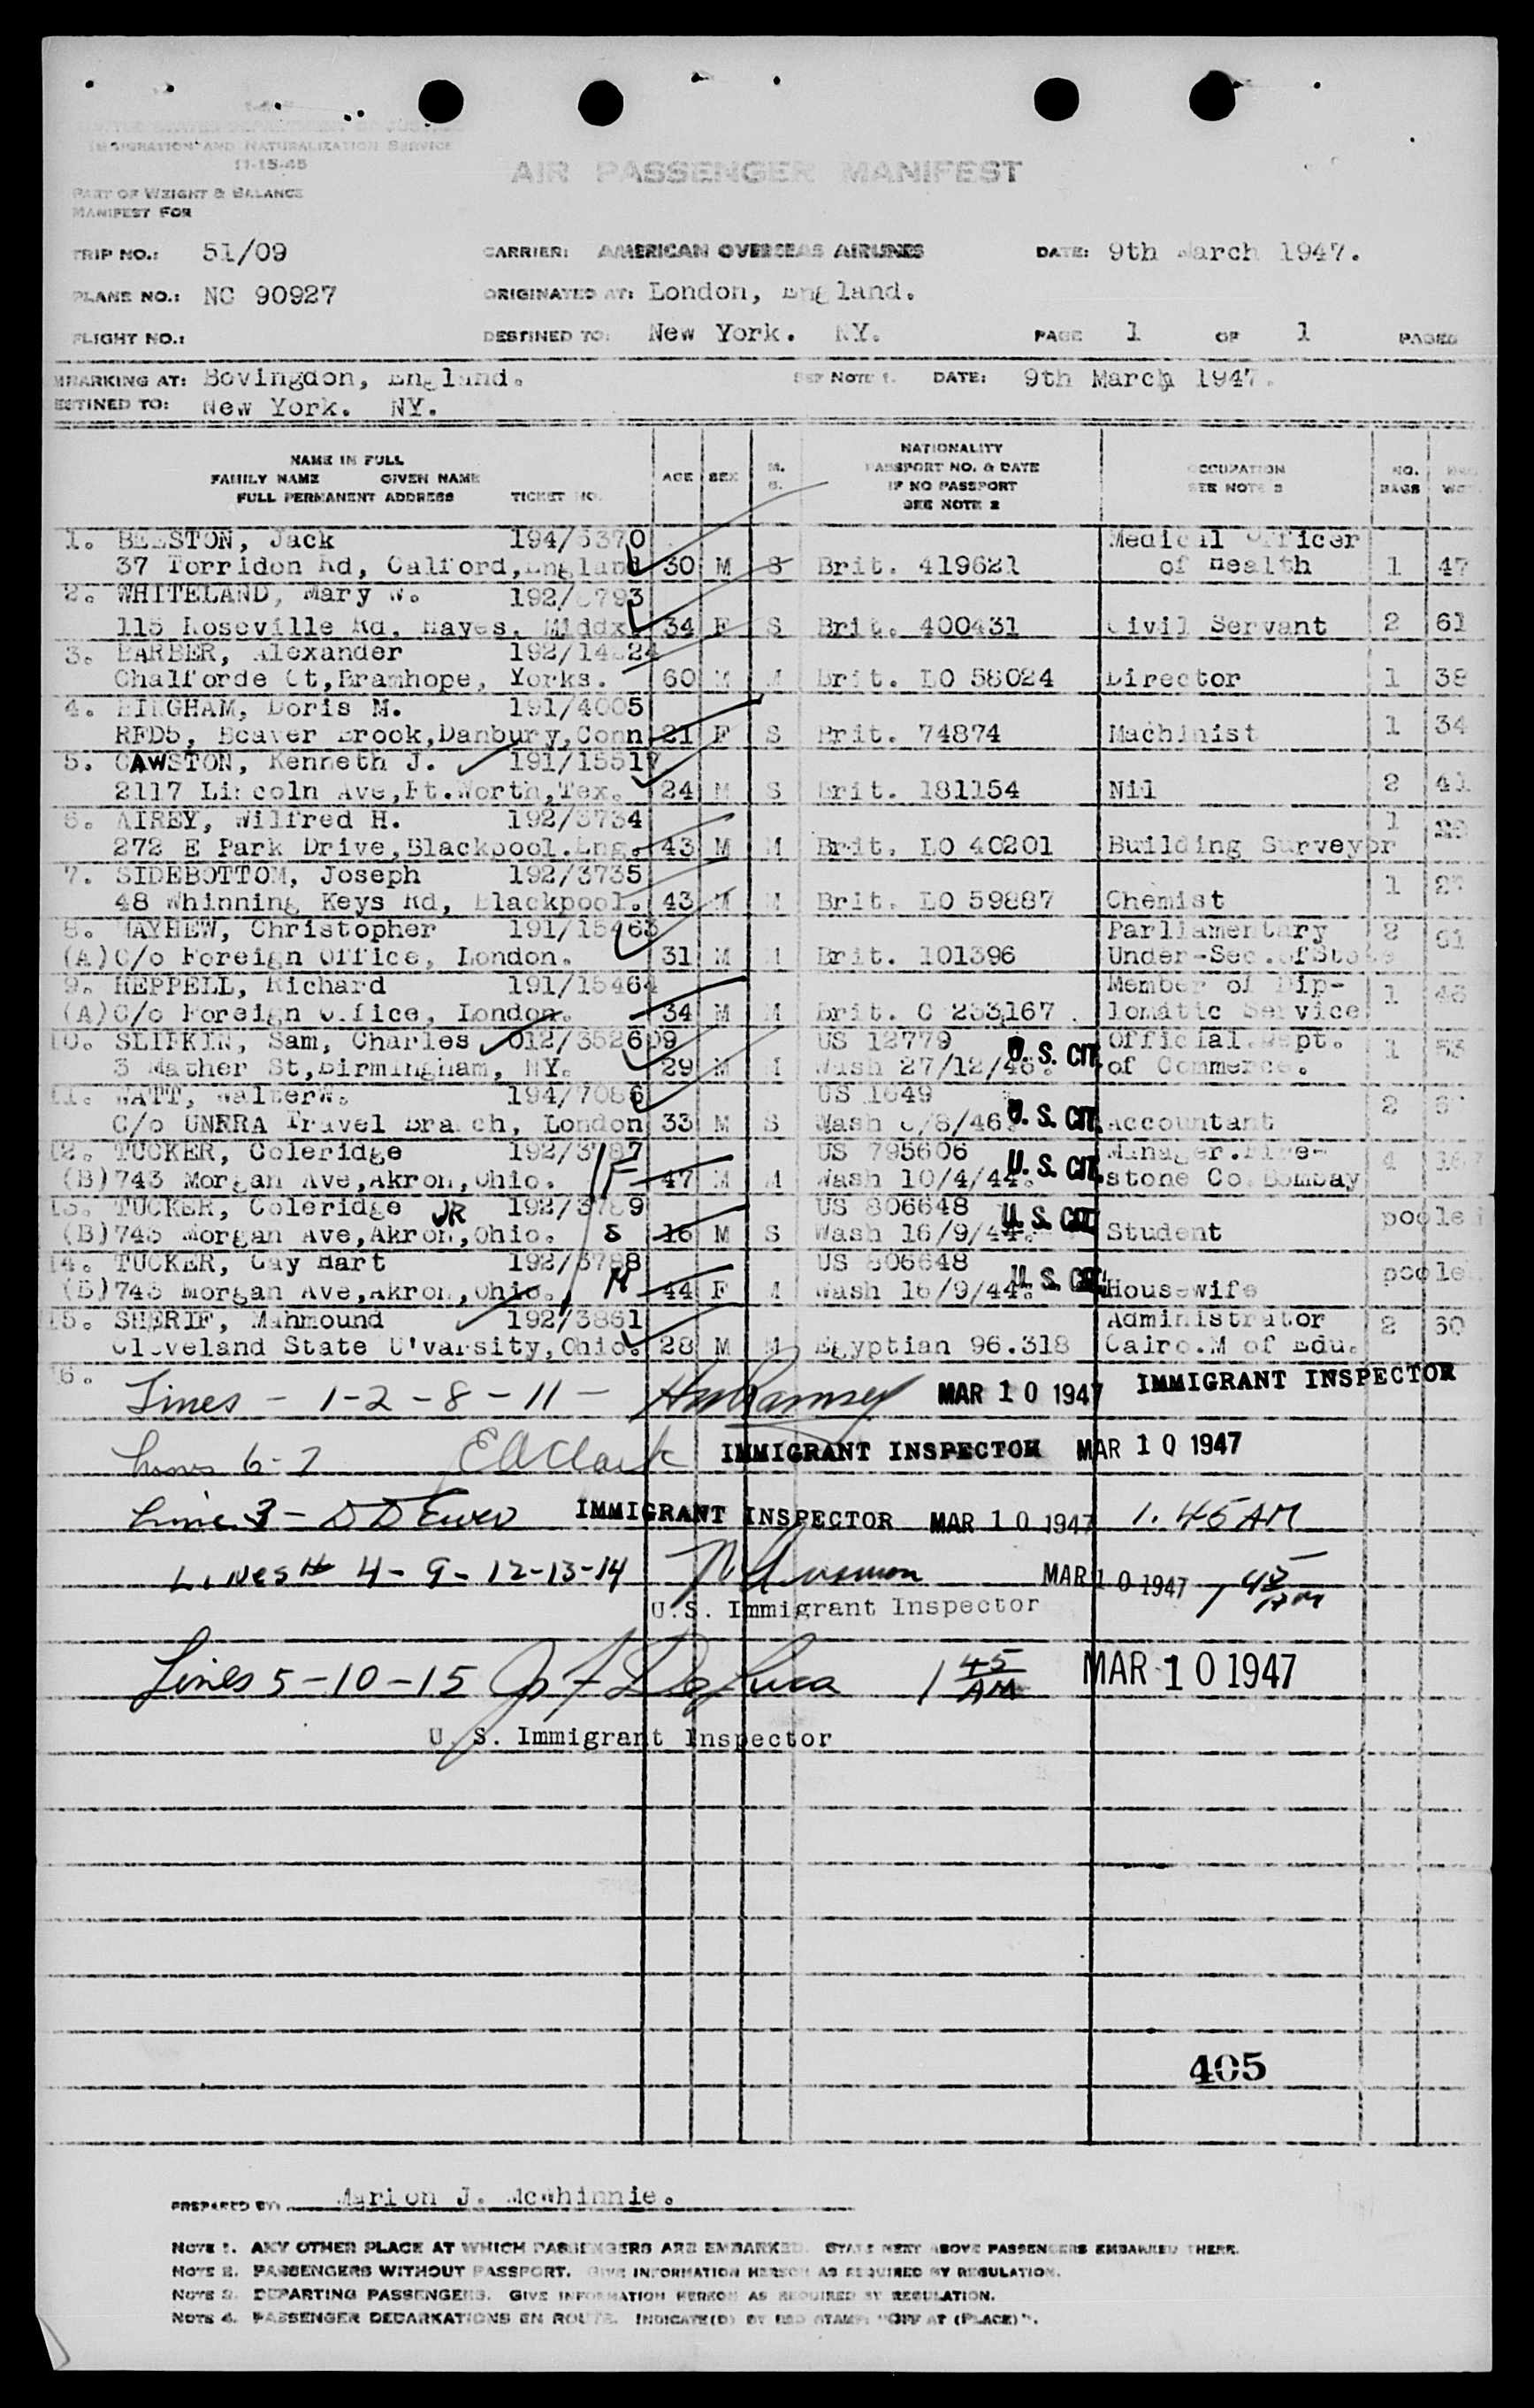 UNITED STATES DEPARTMENT OF JUSTICE
IMMIGRATION AND NATURALIZATION SERVICE
11-15-45
AIR PASSENGER MANIFEST
PART OF WEIGHT & BALANCE
MANIFEST FOR
TRIP NO.: 51/09 CARRIER: AMERICAN OVERSEAS AIRLINES DATE: 9th March 1947.
PLANE NO.: NC 90927 ORIGINATED AT: London, England.
FLIGHT NO.: DESTINED TO: New York. NY. PAGE 1 OF 1 PAGES
EMBARKING AT: Bovingdon, England. SEE NOTE 1. DATE: 9th March 1947.
DESTINED TO: New York. NY.
NAME IN FULL
FAMILY NAME GIVEN NAME
FULL PERMANENT ADDRESS TICKET NO.
AGE SEX M. S.
NATIONALITY
PASSPORT NO. & DATE
IF NO PASSPORT
SEE NOTE 2
OCCUPATION
SEE NOTE 3
NO. BAGS
1. BEESTON, Jack 194/5370 Medical Officer
37 Torridon Rd, Catford, England 30 M S Brit. 419621 of Health 1 47
2. WHITELAND, Mary W. 192/ 793
115 Roseville Rd, Hayes, Middx. 34 F S Brit. 400431 Civil Servant 2 61
3. BARBER, Alexander 192/14 24
Chalforde Ct,Bramhope, Yorks. 60 M M Brit. LO 58024 Director 1 38
4. BINGHAM, Doris M. 191/4005
RFD5, Beaver Brook,Danbury,Conn 21 F S Brit. 74874 Machinist 1 34
5. CAWSTON, Kenneth J. 191/15517
2117 Lincoln Ave,Ft.Worth,Tex. 24 M S Brit. 181154 Nil 2 41
6. AIREY, Wilfred H. 192/3734
272 E Park Drive,Blackpool.Eng. 43 M M Brit. LO 40201 Building Surveyor 1
7. SIDEBOTTOM, Joseph 192/3735
48 Whinning Keys Rd, Blackpool. 43 M M Brit. LO 59887 Chemist 1
8. MAYHEW, Christopher 191/15463 Parliamentary 2 61
(A)C/o Foreign Office, London. 31 M M Brit. 101396 Under-Sec.of State
9. HEPPELL, Richard 191/15464 Member of Dip- 1 46
(A)C/o Foreign Office, London. 34 M M Brit. C 253167 lomatic Service
10. SLIFKIN, Sam, Charles 012/352609 US 12779 U. S. CIT. Official.Dept. 1 53
3 Mather St,Birmingham, NY. 29 M M Wash 27/12/46. of Commerce.
11. WATT, WalterW. 194/7086 US 1649 2
C/o UNRRA Travel Branch, London 33 M S Wash /8/46. U. S. CIT. Accountant
12. TUCKER, Coleridge 192/3787 US 795606 U. S. CIT. Manager.Fire- 4
(B)743 Morgan Ave,Akron,Ohio. F 47 M M Wash 10/4/44. stone Co.Bombay
13. TUCKER, Coleridge JR 192/3789 US 806648 U. S. CIT. pooled
(B)743 Morgan Ave,Akron,Ohio. S 16 M S Wash 16/9/44. Student
14. TUCKER, Gay Hart 192/3788 US 806648 U. S. CIT. pooled
(B)743 Morgan Ave,Akron,Ohio. M 44 F M Wash 16/9/44. Housewife
15. SHERIF, Mahmound 192/3861 Administrator 2 60
Cleveland State U'varsity,Ohio. 28 M M Egyptian 96.318 Cairo.M of Edu.
16.
Lines - 1-2-8-11- HM Ramsey MAR 10 1947 IMMIGRANT INSPECTOR
Lines 6-7 EA Clark IMMIGRANT INSPECTOR MAR 10 1947
Line 3- D D Ewen IMMIGRANT INSPECTOR MAR 10 1947 1.45 AM
LINES # 4-9-12-13-14 MAR 10 1947 1 45 AM
U.S. Immigrant Inspector
Lines 5-10-15 J F DeLuca 1 45 AM MAR 10 1947
U. S. Immigrant Inspector
405
PREPARED BY: Marion J. McWhinnie.
NOTE 1. ANY OTHER PLACE AT WHICH PASSENGERS ARE EMBARKED. STATE NEXT ABOVE PASSENGERS EMBARKED THERE.
NOTE 2. PASSENGERS WITHOUT PASSPORT. GIVE INFORMATION HEREON AS REQUIRED BY REGULATION.
NOTE 3. DEPARTING PASSENGERS. GIVE INFORMATION HEREON AS REQUIRED BY REGULATION.
NOTE 4. PASSENGER DEBARKATIONS EN ROUTE. INDICATE(D) BY RED STAMP: "OFF AT (PLACE)".